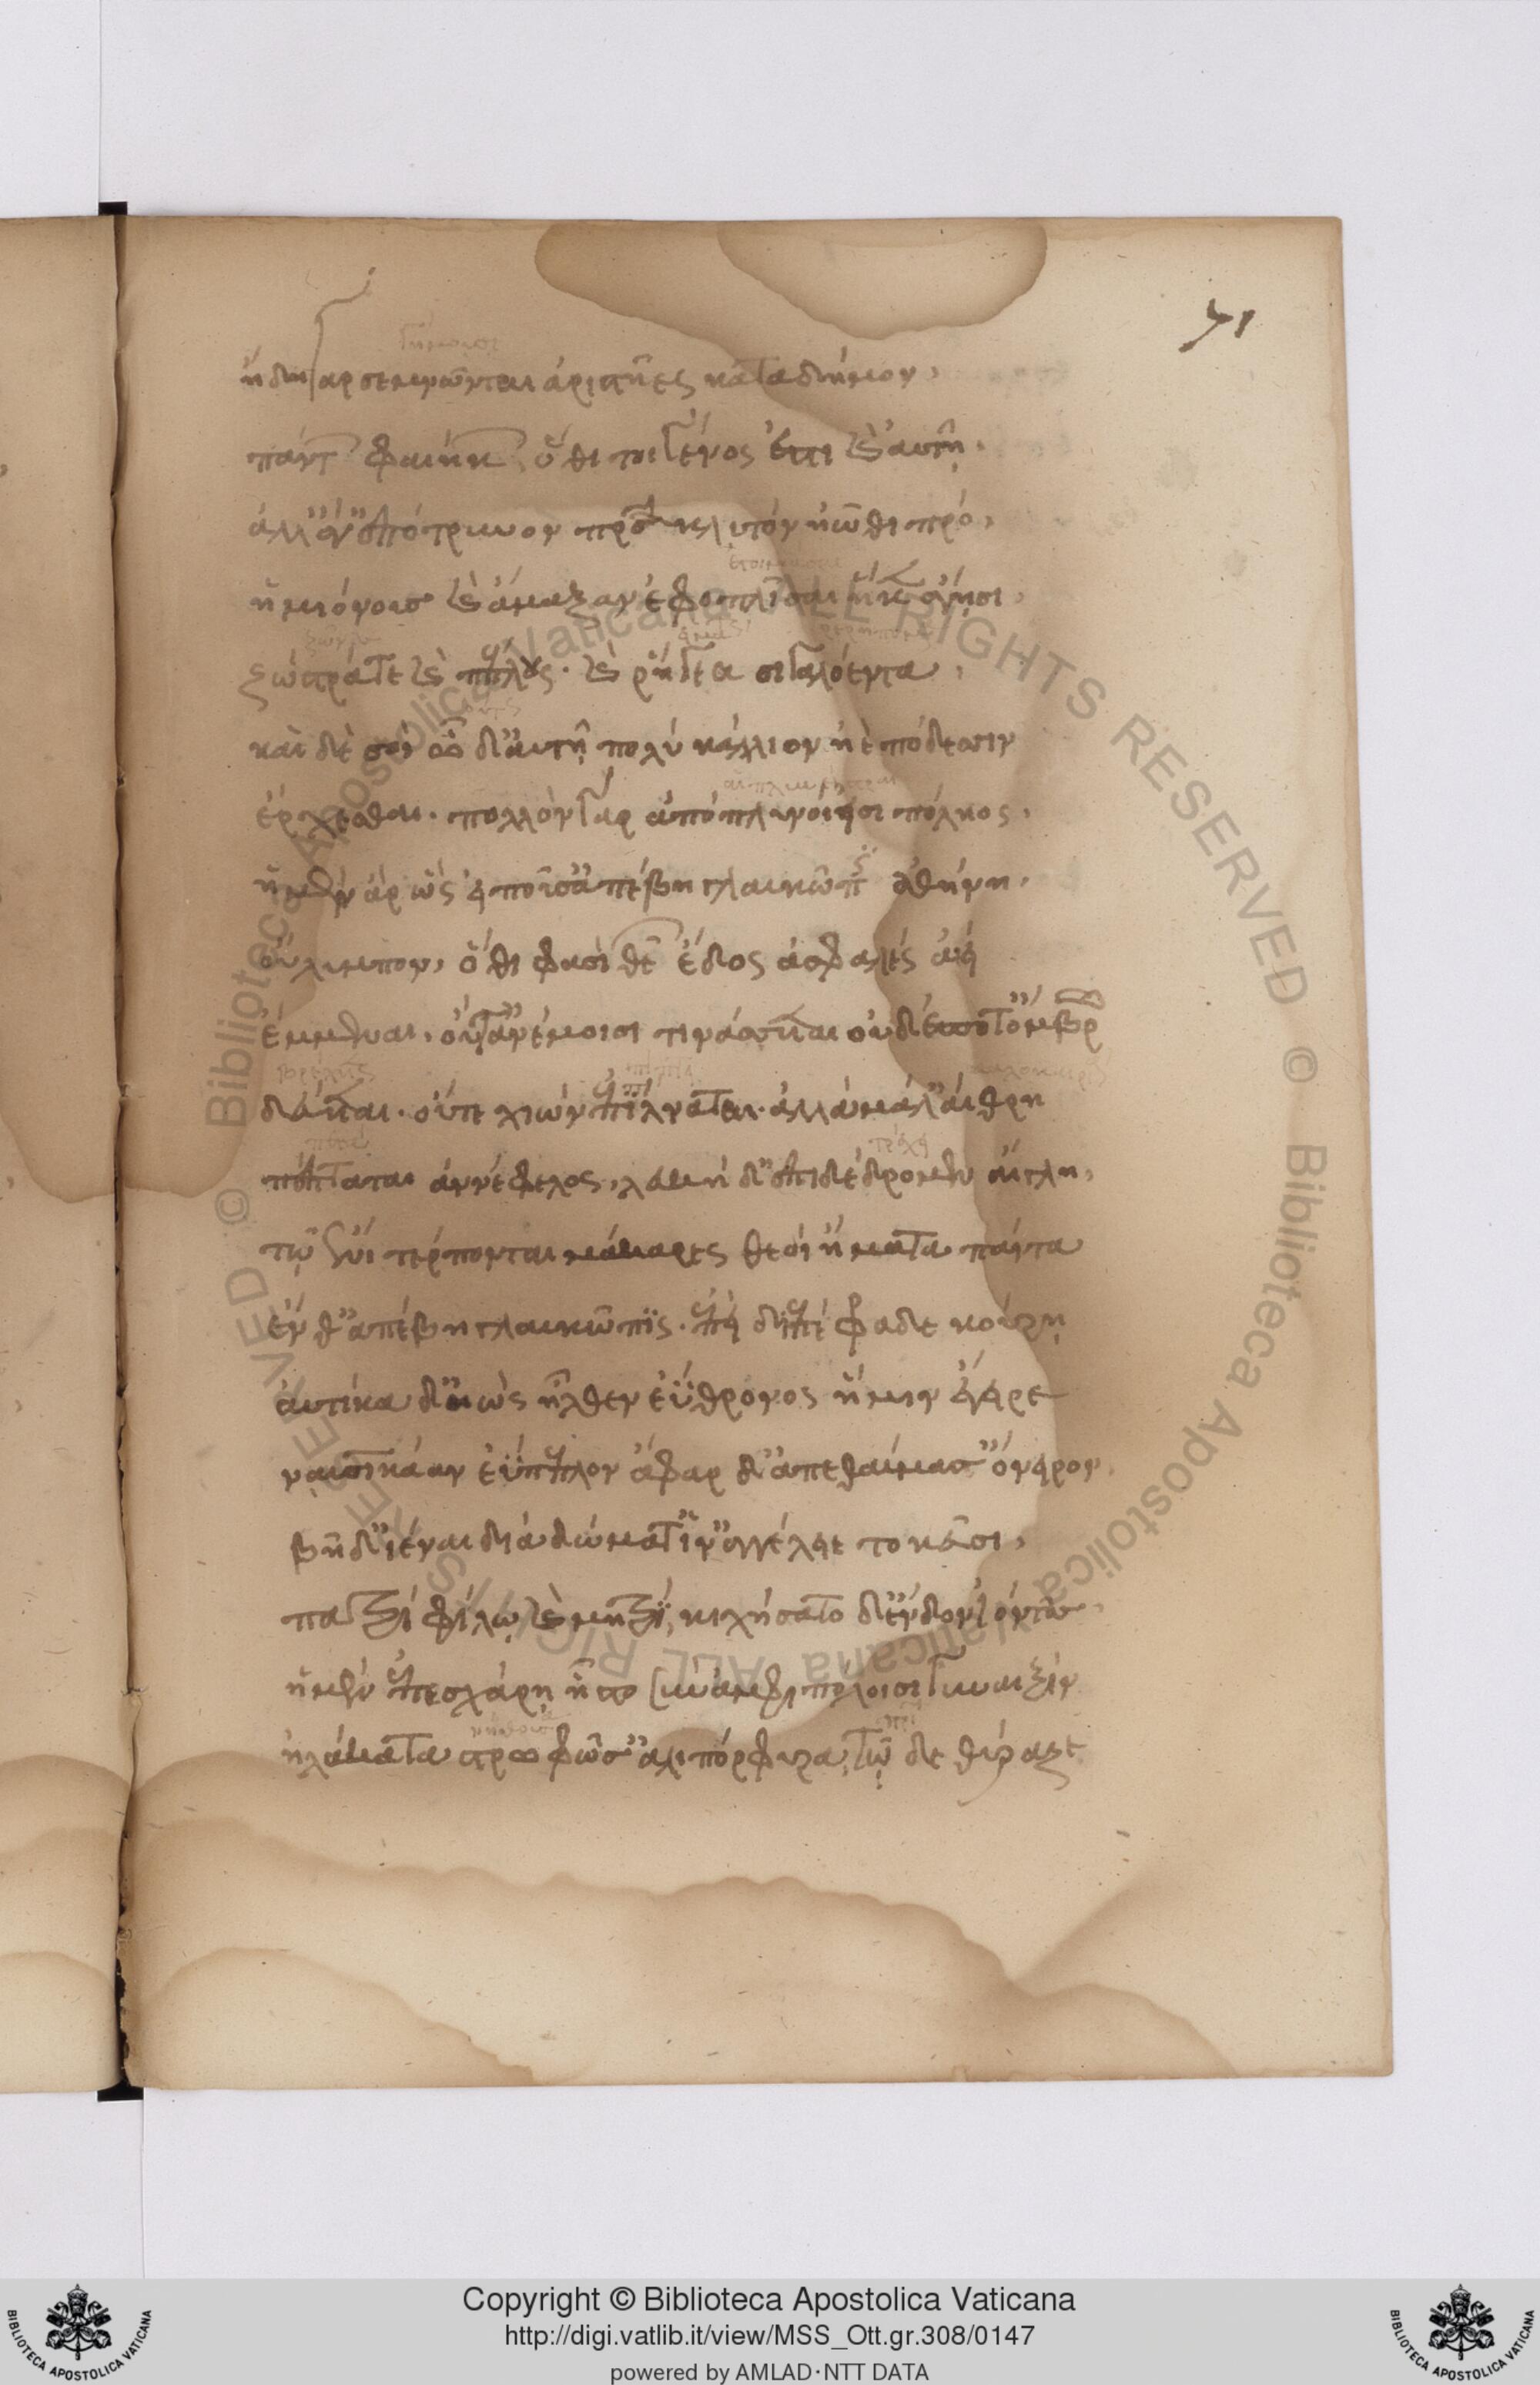 71
ἤδη γάρ σε μνῶνται ἀριστῆες κατὰ δῆμον,
πάντ φαιήκ, ὅθι τοι γένος ἐστι καὶ αὐτῆ.
ἀλλ' ἄγ' ἐπότρυνον πρα κλυτὸν ἠῶθι πρό,
ἡμιόνους καὶ ἄμαξαν ἐφοπλίσαι ἥ κεν ἄγησι,
ζῶστρά τε καὶ πέπλους. καὶ ῥήγεα σιγαλόεντα,
καὶ δὲ σοὶ ὧδ' αὐτῆ πολὺ κάλλιον ἠὲ πόδεσσιν
ἔρχεσθαι. πολλὸν γὰρ ἀπόπλυνοί εἰσι πόληος.
ἡ μὲν ἄρ ὣς εἰποῦσ' ἀπέβη γλαυκῶπις ἀθήνη.
οὔλυμπον, ὅθι φασὶ θε ἕδος ἀσφαλὲς ἀεὶ
ἔμμεναι. οὔτ' ἀνέμοισι τινάσσεται οὐδέ ποτ' ὄμβρω
δεύεται. οὔτε χιὼν ἐπιπίλναται. ἀλλὰ μάλ' αἴθρη
πέπταται ἀννέφελος, λευκὴ δ' ἐπιδέδρομεν αἴγλη,
τῶ ἔνι τέρπονται μάκαρες θεοὶ ἤματα πάντα
ἔνθ' ἀπέβη γλαυκῶπις. ἐπεὶ διεπέφραδε κούρη
αὐτίκα δ' ἠὼς ἦλθεν ἐΰθρονος ἥ μιν ἔγειρε
ναυσικάαν ἐΰπεπλον ἄφαρ δ' ἀπεθαύμασ' ὄνειρον.
βῆ δ' ἰέναι διὰ δώματ' ἵν' ἀγγέλειε τοκεῦσι,
πατρὶ φίλω καὶ μητρί, κιχήσατο δ' ἔνδον ἐόντα.
ἡ μὲν ἐπεσχάρη ἧστο σὺν ἀμφιπόλοισι γυναιξὶν
ἠλάκατα στρωφῶσ' ἁλιπόρφυρα, τῶ δὲ θύραζε
Copyright © Biblioteca Apostolica Vaticana
http://digi.vatlib.it/view/MSS_Ott.gr.308/0147
powered by AMLAD·NTT DATA